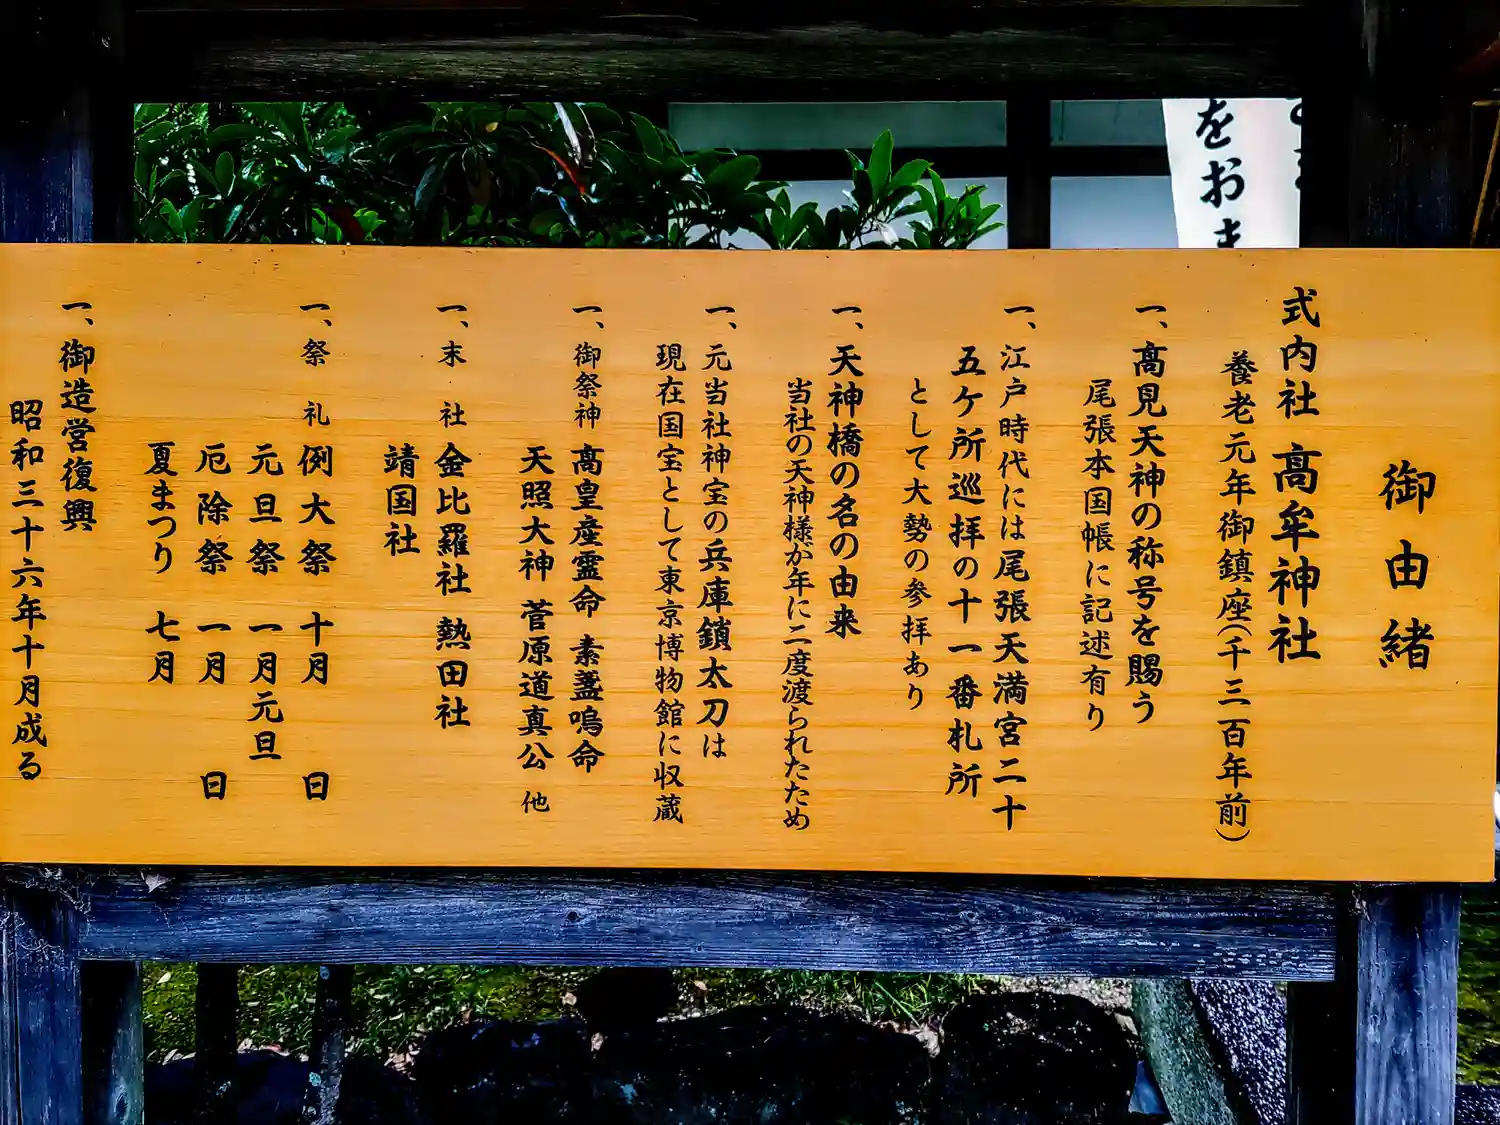 御由緒
式内社 高牟神社
養老元年御鎮座(千三百年前)
一、高見天神の称号を賜う
尾張本国帳に記述有り
一、江戸時代には尾張天満宮二十
五ケ所巡拝の十一番札所
として大勢の参拝あり
一、天神橋の名の由来
当社の天神様が年に二度渡られたため
一、元当社神宝の兵庫鎖太刀は
現在国宝として東京博物館に収蔵
一、御祭神 高皇産霊命 素盞嗚命
天照大神 菅原道真公 他
一、末 社 金比羅社 熱田社
靖国社
一、祭 礼 例大祭 十月 日
元旦祭 一月元旦
厄除祭 一月 日
夏まつり 七月
一、御造営復興
昭和三十六年十月成る
をおま